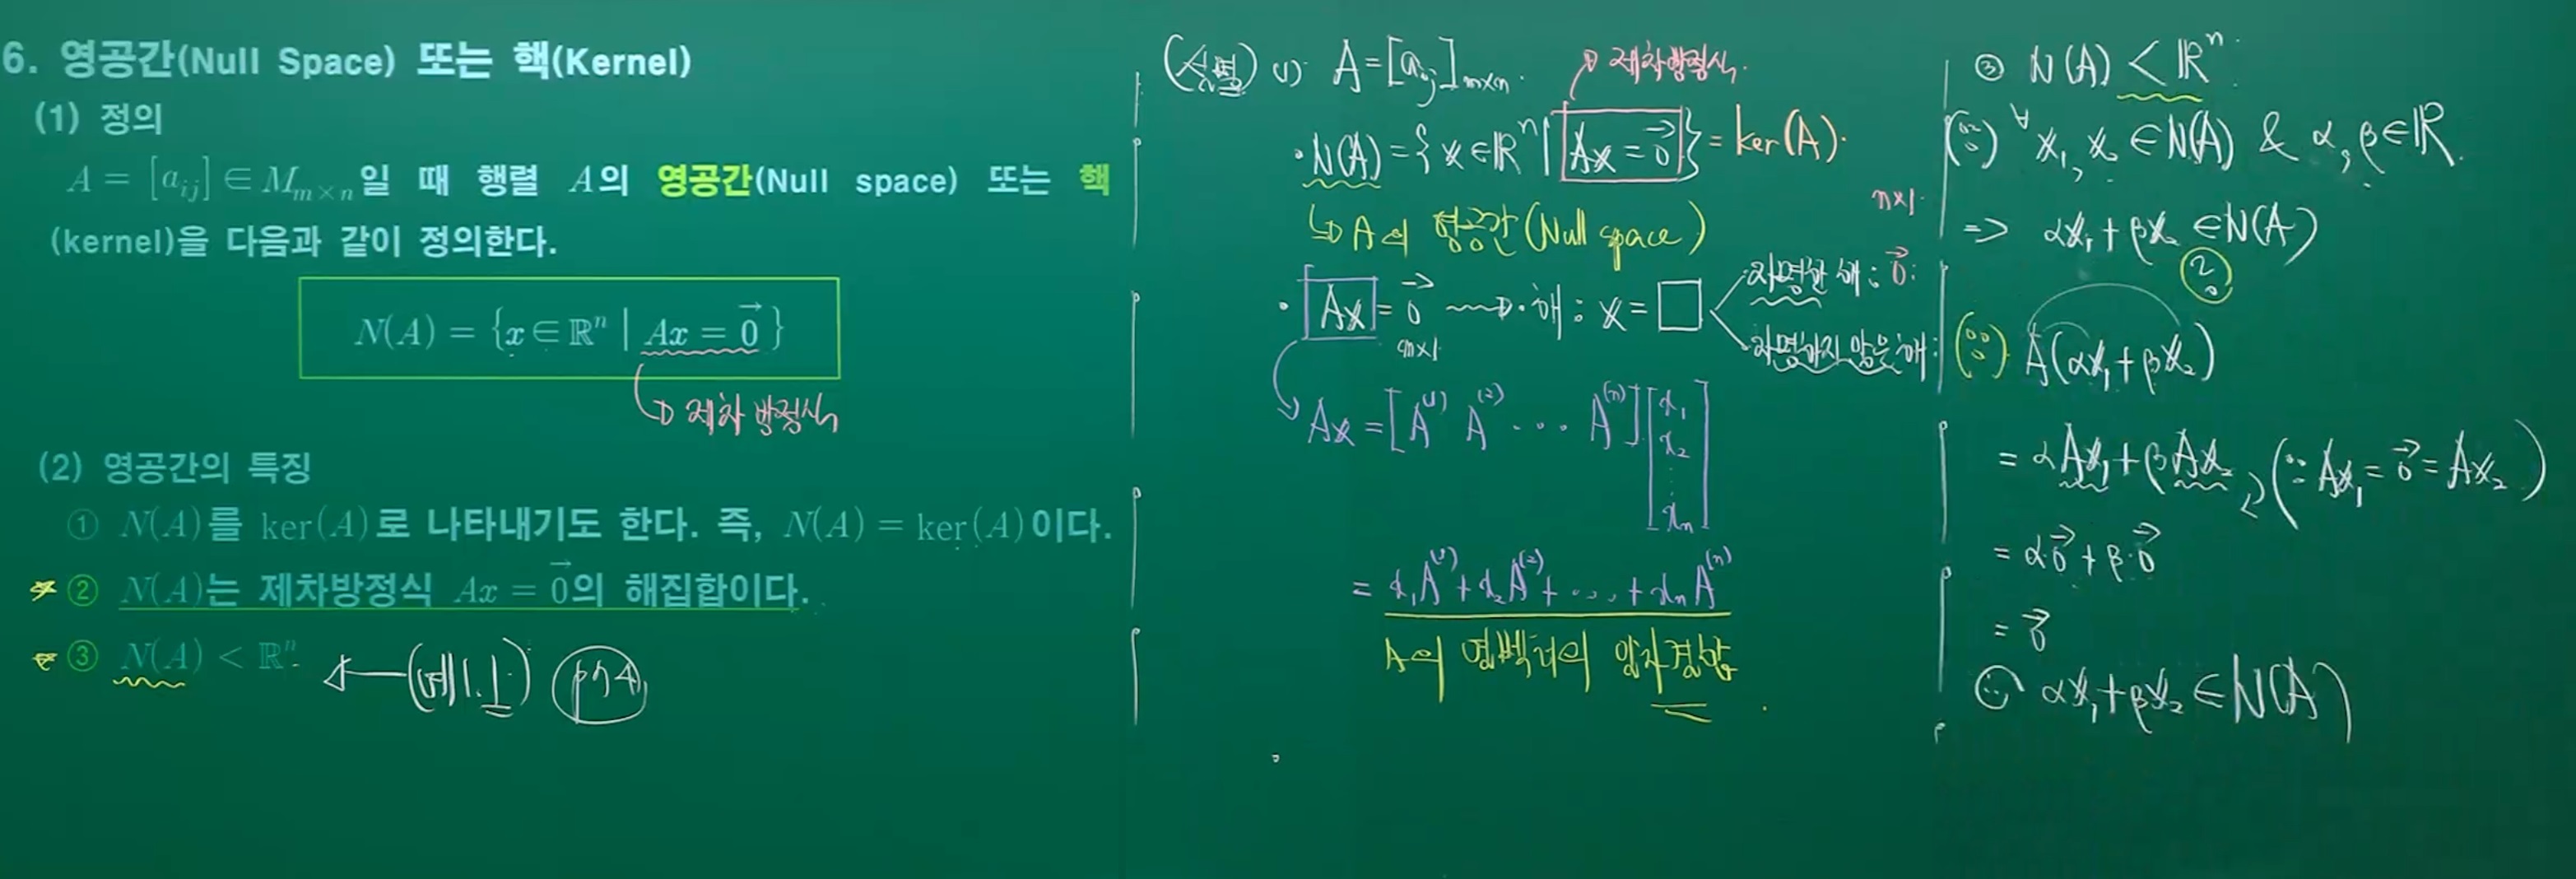 6. 영공간(Null Space) 또는 핵(Kernel)
(1) 정의
A = [a_{ij}] ∈ M_{m×n}일 때 행렬 A의 영공간(Null space) 또는 핵
(kernel)을 다음과 같이 정의한다.
N(A) = {x ∈ ℝⁿ | Ax = 0⃗ }
제차 방정식
(2) 영공간의 특징
① N(A)를 ker(A)로 나타내기도 한다. 즉, N(A) = ker(A)이다.
② N(A)는 제차방정식 Ax = 0⃗의 해집합이다.
③ N(A) < ℝⁿ ← (예1.1) p74
(설명) (1) A = [a_{ij}]_{m×n}.
제차방정식.
· N(A) = {x ∈ ℝⁿ | Ax = 0⃗} = ker(A).
↳ A의 영공간(Null space)
n×1.
· Ax = 0⃗ ⇝ 해 : x = □
m×1
자명한 해 : 0⃗.
자명하지 않은 해 :
Ax = [A⁽¹⁾ A⁽²⁾ ... A⁽ⁿ⁾] [x₁ x₂ ⋮ xₙ]
= x₁A⁽¹⁾ + x₂A⁽²⁾ + ... + xₙA⁽ⁿ⁾
A의 열벡터의 일차결합
③ N(A) < ℝⁿ.
(∵) ∀x₁, x₂ ∈ N(A) & α, β ∈ ℝ.
⇒ αx₁ + βx₂ ∈ N(A)
?
(∵) A(αx₁ + βx₂)
= αAx₁ + βAx₂ (∵ Ax₁ = 0⃗ = Ax₂)
= α·0⃗ + β·0⃗
= 0⃗
∴ αx₁ + βx₂ ∈ N(A)